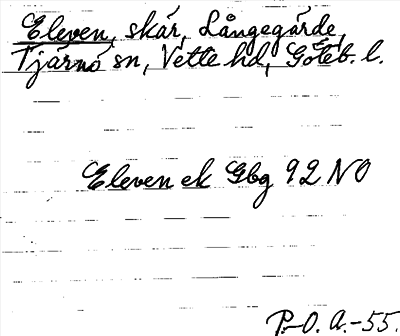 Eleven, skär, Långegärde,
Tjärnö sn, Vette hd, Göteb. l.
Eleven ek Gbg 92 NO
P.-O. A.-55.